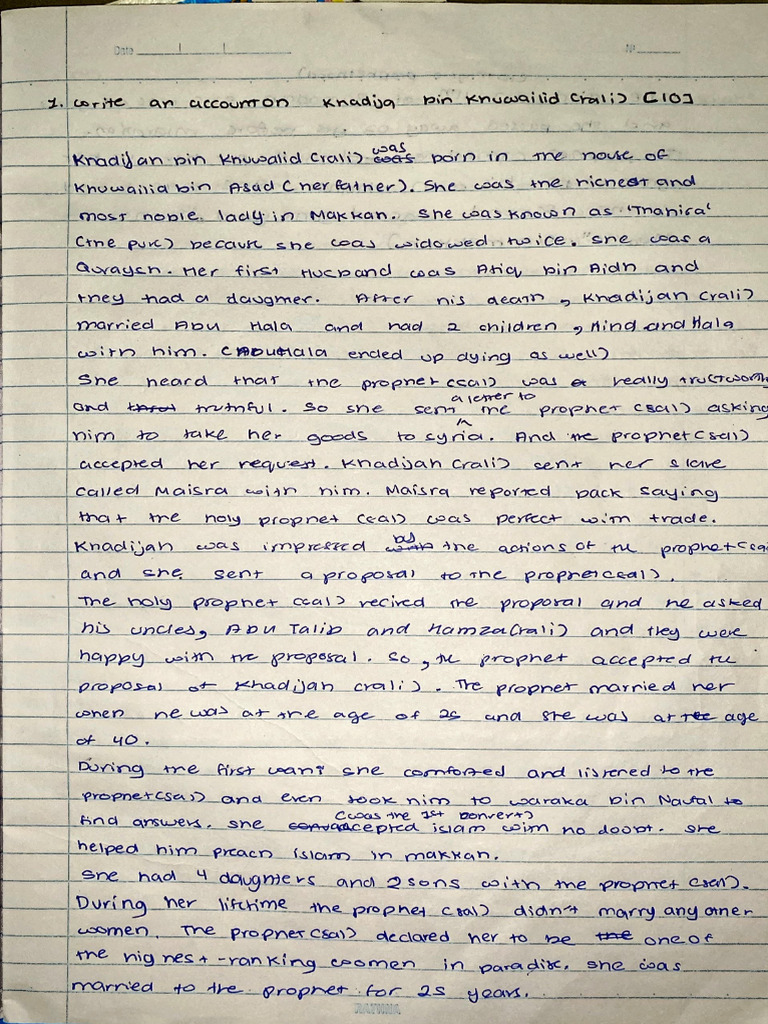 Date
No
1. Write an account on Khadija bin Khuwailid (rali) [10]
Khadijah bin Khuwalid (rali) was born in the house of
Khuwailia bin Asad (her father). She was the richest and
most noble lady in Makkah. She was known as 'Thahira'
(the pure) because she was widowed twice. She was a
Quraysh. Her first Husband was Atiq bin Aidh and
they had a daugther. After his death, Khadijah (rali)
married Abu Hala and had 2 children, Hind and Hala
with him. (Abu Hala ended up dying as well)
She heard that the prophet (sal) was really trustworth
and truthful. So she sent a letter to the prophet (sal) asking
him to take her goods to syria. And the prophet (sal)
accepted her request. Khadijah (rali) sent her slave
called Maisra with him. Maisra reported back saying
that the holy prophet (sal) was perfect with trade.
Khadijah was impressed by the actions of the prophet (sal
and she sent a proposal to the prophet (sal).
The holy prophet (sal) recived the proposal and he asked
his uncles, Abu Talib and Hamza (rali) and they were
happy with the proposal. So, the prophet accepted the
proposal of Khadijah (rali). The prophet married her
when he was at the age of 25 and she was at the age
of 40.
During the first wahi she comforted and listened to the
prophet (sal) and even took him to waraka bin Naufal to
find answers. She accepted islam (was the 1st convert) with no doubt. She
helped him preach islam in makkah.
She had 4 daughters and 2 sons with the prophet (sal).
During her lifetime the prophet (sal) didn't marry any other
women. The prophet (sal) declared her to be one of
the highest-ranking women in paradise. She was
married to the prophet for 25 years.